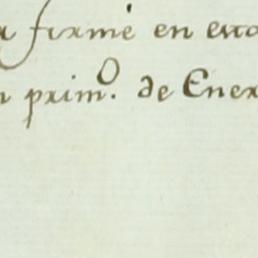 firmé en esta
prim.º de Ener